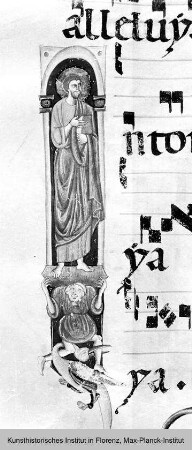 alleluy
nto
ya
ya.
Kunsthistorisches Institut in Florenz, Max-Planck-Institut